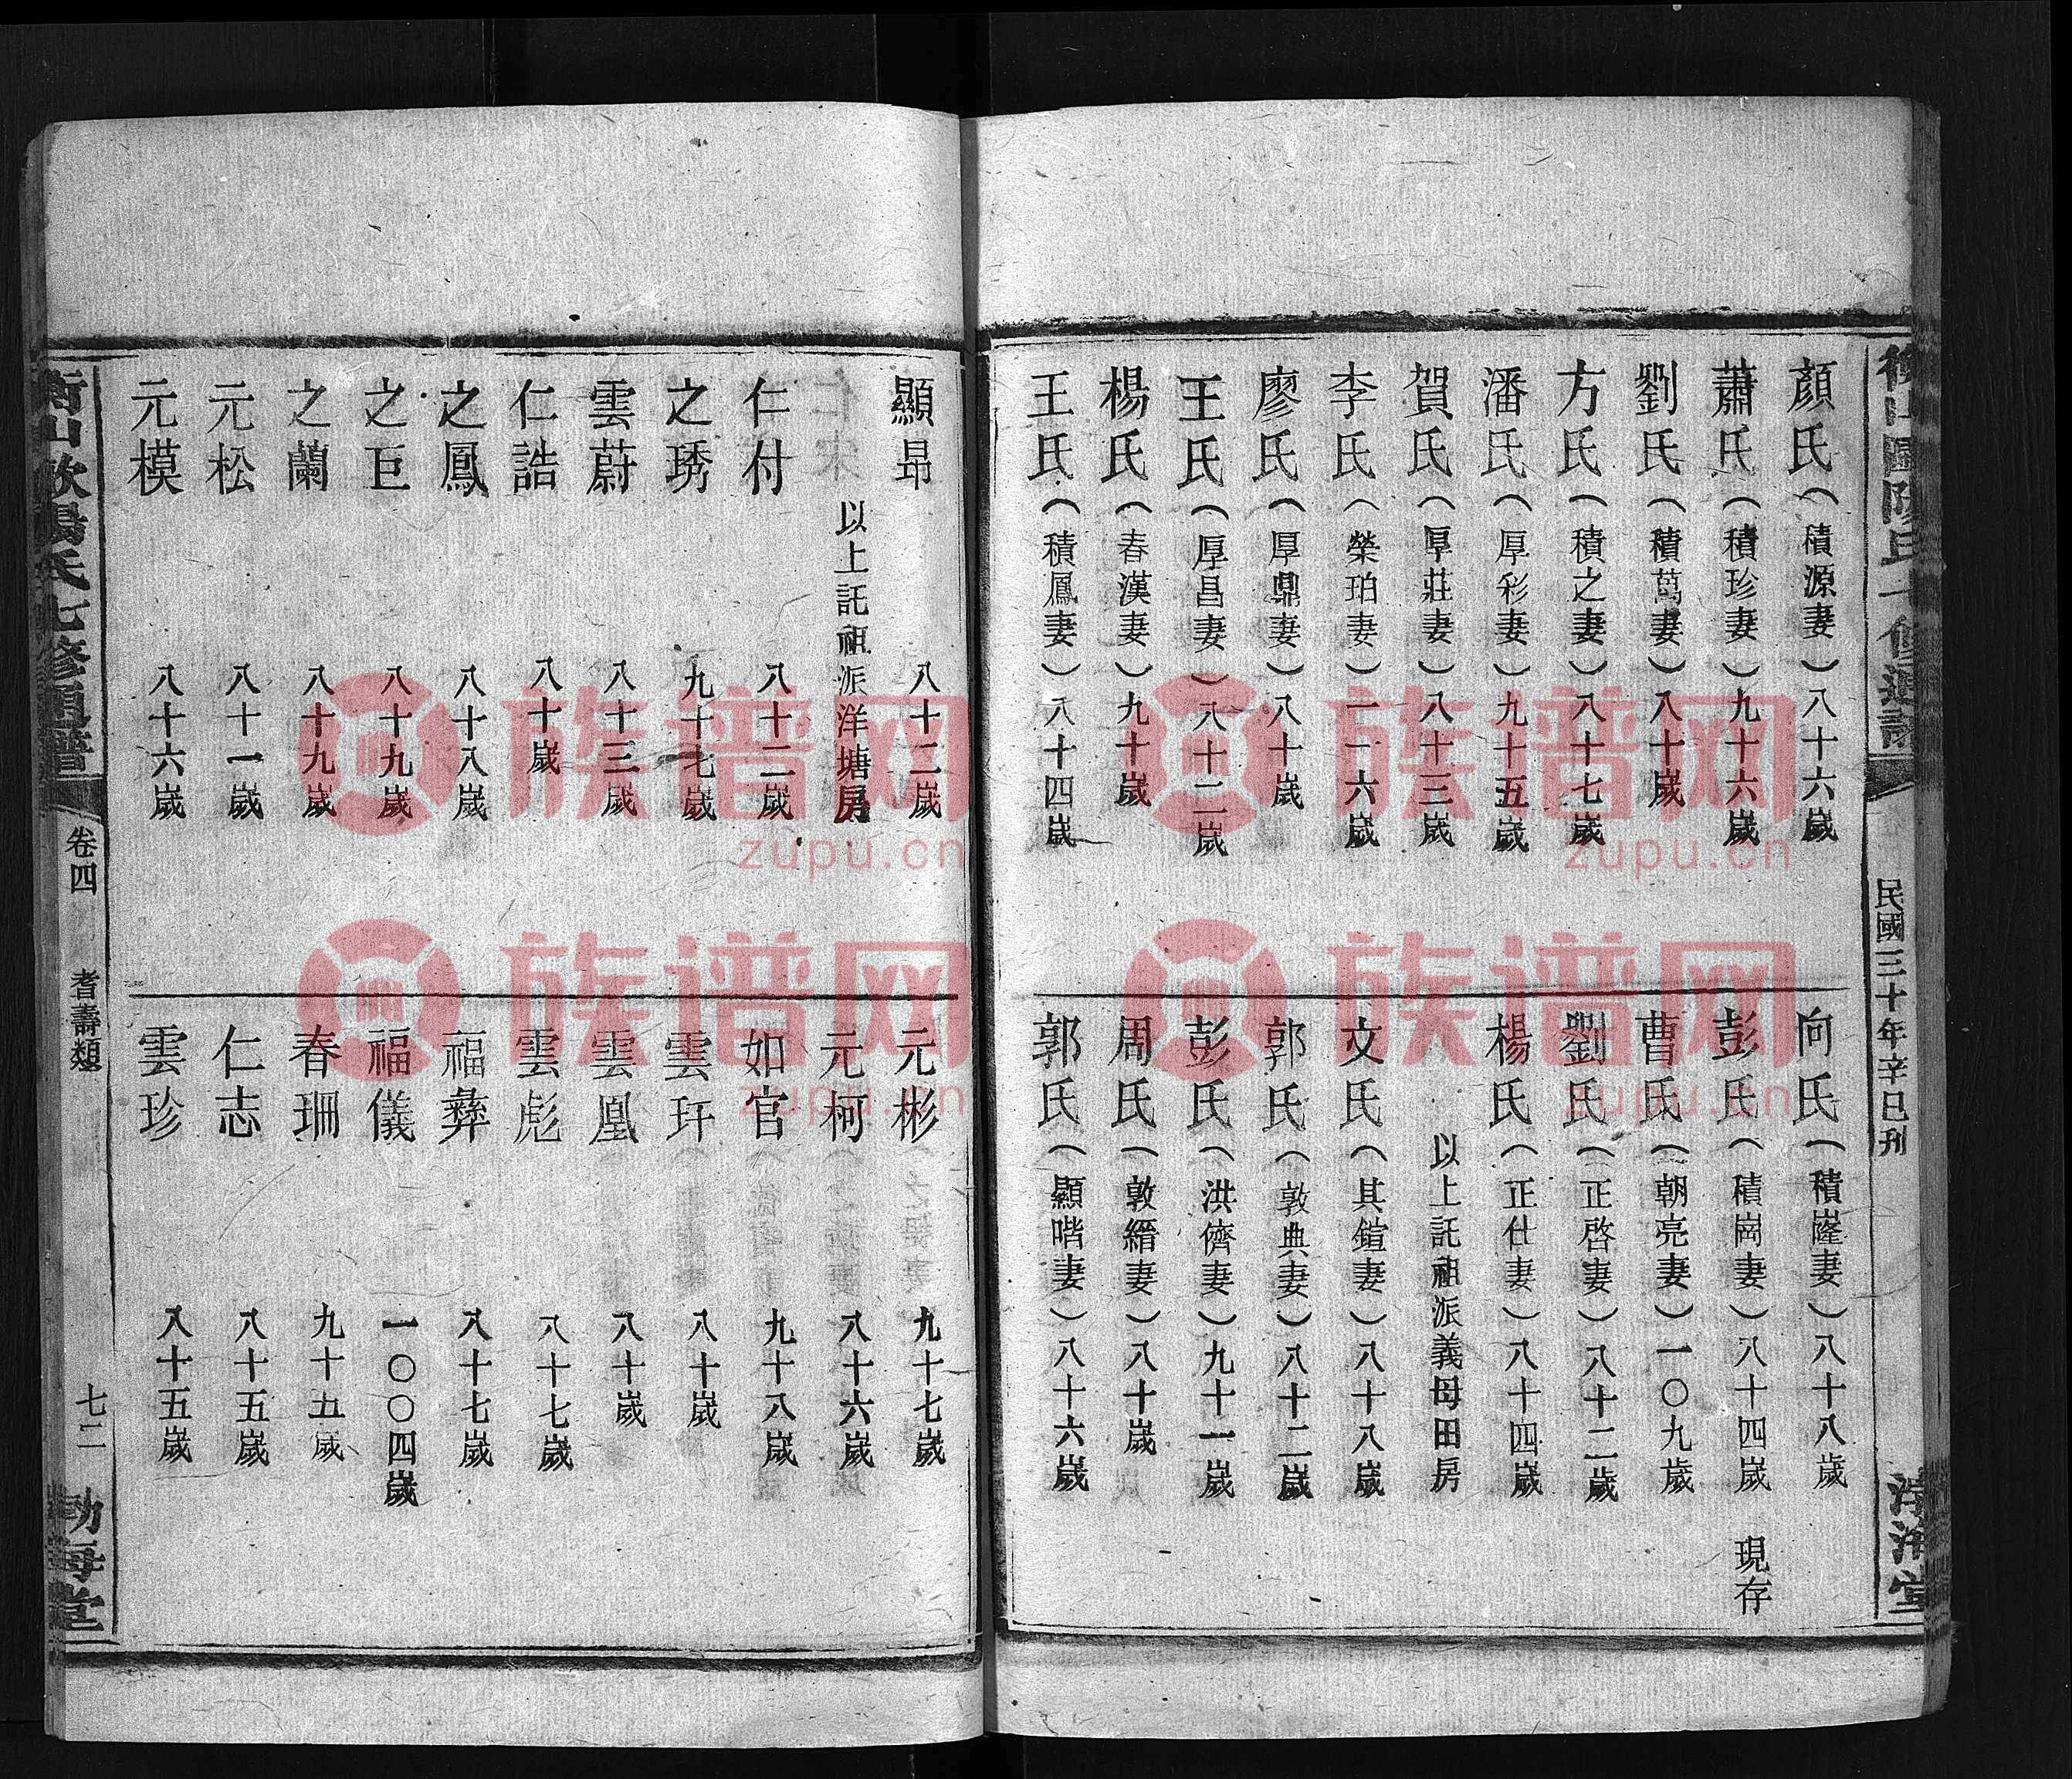 民國三十年辛巳刊
顏氏（積源妻）八十六歲
蕭氏（積珍妻）九十六歲
劉氏（積萬妻）八十歲
方氏（積之妻）八十七歲
潘氏（厚彩妻）九十五歲
賀氏（厚莊妻）八十三歲
李氏（榮珀妻）一一六歲
廖氏（厚鼎妻）八十歲
王氏（厚昌妻）八十二歲
楊氏（春漢妻）九十歲
王氏（積鳳妻）八十四歲
向氏（積嶐妻）八十八歲
彭氏（積崗妻）八十四歲 現存
曹氏（朝亮妻）一〇九歲
劉氏（正啓妻）八十二歲
楊氏（正仕妻）八十四歲
以上託祖派義母田房
文氏（其鍹妻）八十八歲
郭氏（敦典妻）八十二歲
彭氏（洪儕妻）九十一歲
周氏（敦縉妻）八十歲
郭氏（顯喈妻）八十六歲
顯昂 八十二歲
以上託祖派洋塘房
仁付 八十二歲
之琇 九十七歲
雲蔚 八十三歲
仁誥 八十歲
之鳳 八十八歲
之巨 八十九歲
之蘭 八十九歲
元松 八十一歲
元模 八十六歲
元彬 九十七歲
元柯 八十六歲
如官 九十八歲
雲玕 八十歲
雲凰 八十歲
雲彪 八十七歲
福彝 八十七歲
福儀 一〇〇四歲
春珊 九十五歲
仁志 八十五歲
雲珍 八十五歲
衡山歐陽氏七修通譜 卷四 耆壽類 七二 勃海堂
族谱网
zupu.cn
族谱网
zupu.cn
族谱网
zupu.cn
族谱网
zupu.cn